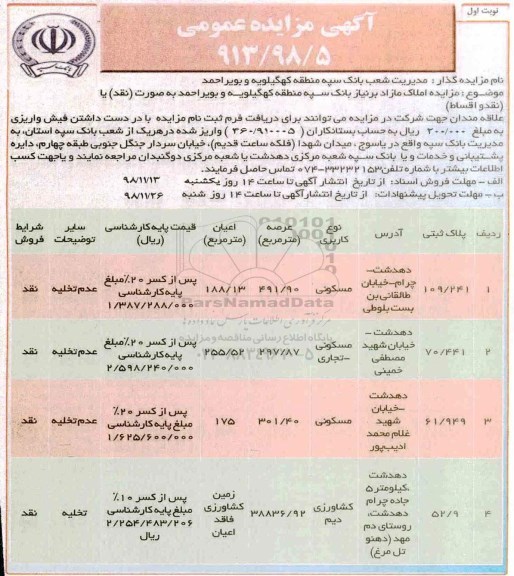 نوبت اول
آگهی مزایده عمومی
۹۱۳/۹۸/۵
نام مزایده گذار : مدیریت شعب بانک سپه منطقه کهگیلویه و بویراحمد
موضوع : مزایده املاک مازاد برنیاز بانک سپه منطقه کهگیلویه و بویراحمد به صورت (نقد) یا
(نقدو اقساط)
علاقه مندان جهت شرکت در مزایده می توانند برای دریافت فرم ثبت نام مزایده با در دست داشتن فیش واریزی
به مبلغ ۲۰۰/۰۰۰ ریال به حساب بستانکاران ( ۳۶۰/۹۱۰۰۰۵ ) واریز شده درهریک از شعب بانک سپه استان، به
مدیریت بانک سپه واقع در یاسوج ، میدان شهدا (فلکه ساعت قدیم)، خیابان سردار جنگل جنوبی طبقه چهارم، دایره
پشتیبانی و خدمات و یا بانک سپه شعبه مرکزی دهدشت یا شعبه مرکزی دوگنبدان مراجعه نمایند و یاجهت کسب
اطلاعات بیشتر با شماره تلفن ۳۳۲۳۲۱۵۳-۰۷۴ تماس حاصل فرمایند.
الف - مهلت فروش اسناد: از تاریخ انتشار آگهی تا ساعت ۱۴ روز یکشنبه ۹۸/۱۱/۱۳
ب - مهلت تحویل پیشنهادات: از تاریخ انتشار آگهی تا ساعت ۱۴ روز شنبه ۹۸/۱۱/۲۶
ردیف پلاک ثبتی آدرس نوع کاربری عرصه (مترمربع) اعیان (مترمربع) قیمت پایه کارشناسی (ریال) سایر توضیحات شرایط فروش
۱ ۱۰۹/۲۴۱ دهدشت- چرام-خیابان طالقانی بن بست بلوطی مسکونی ۴۹۱/۹۰ ۱۸۸/۱۳ پس از کسر ۲۰٪ مبلغ پایه کارشناسی ۱/۳۸۷/۲۸۸/۰۰۰ عدم تخلیه نقد
۲ ۷۰/۴۴۱ دهدشت - خیابان شهید مصطفی خمینی مسکونی -تجاری ۲۹۷/۸۷ ۲۵۵/۵۲ پس از کسر ۲۰٪ مبلغ پایه کارشناسی ۲/۵۹۸/۲۴۰/۰۰۰ عدم تخلیه نقد
۳ ۶۱/۹۴۹ دهدشت -خیابان شهید غلام محمد ادیب پور مسکونی ۳۰۱/۴۰ ۱۷۵ پس از کسر ۲۰٪ مبلغ پایه کارشناسی ۱/۶۲۵/۶۰۰/۰۰۰ عدم تخلیه نقد
۴ ۵۲/۹ دهدشت ،کیلومتر ۵ جاده چرام دهدشت، روستای دم مهد (دهنو تل مرغ) کشاورزی دیم ۳۸۸۳۶/۹۲ زمین کشاورزی فاقد اعیان پس از کسر ۱۰٪ مبلغ پایه کارشناسی ۲/۲۵۴/۴۸۳/۲۰۶ ریال تخلیه نقد
ParsNamadData
پایگاه اطلاع رسانی مناقصه و مزایده